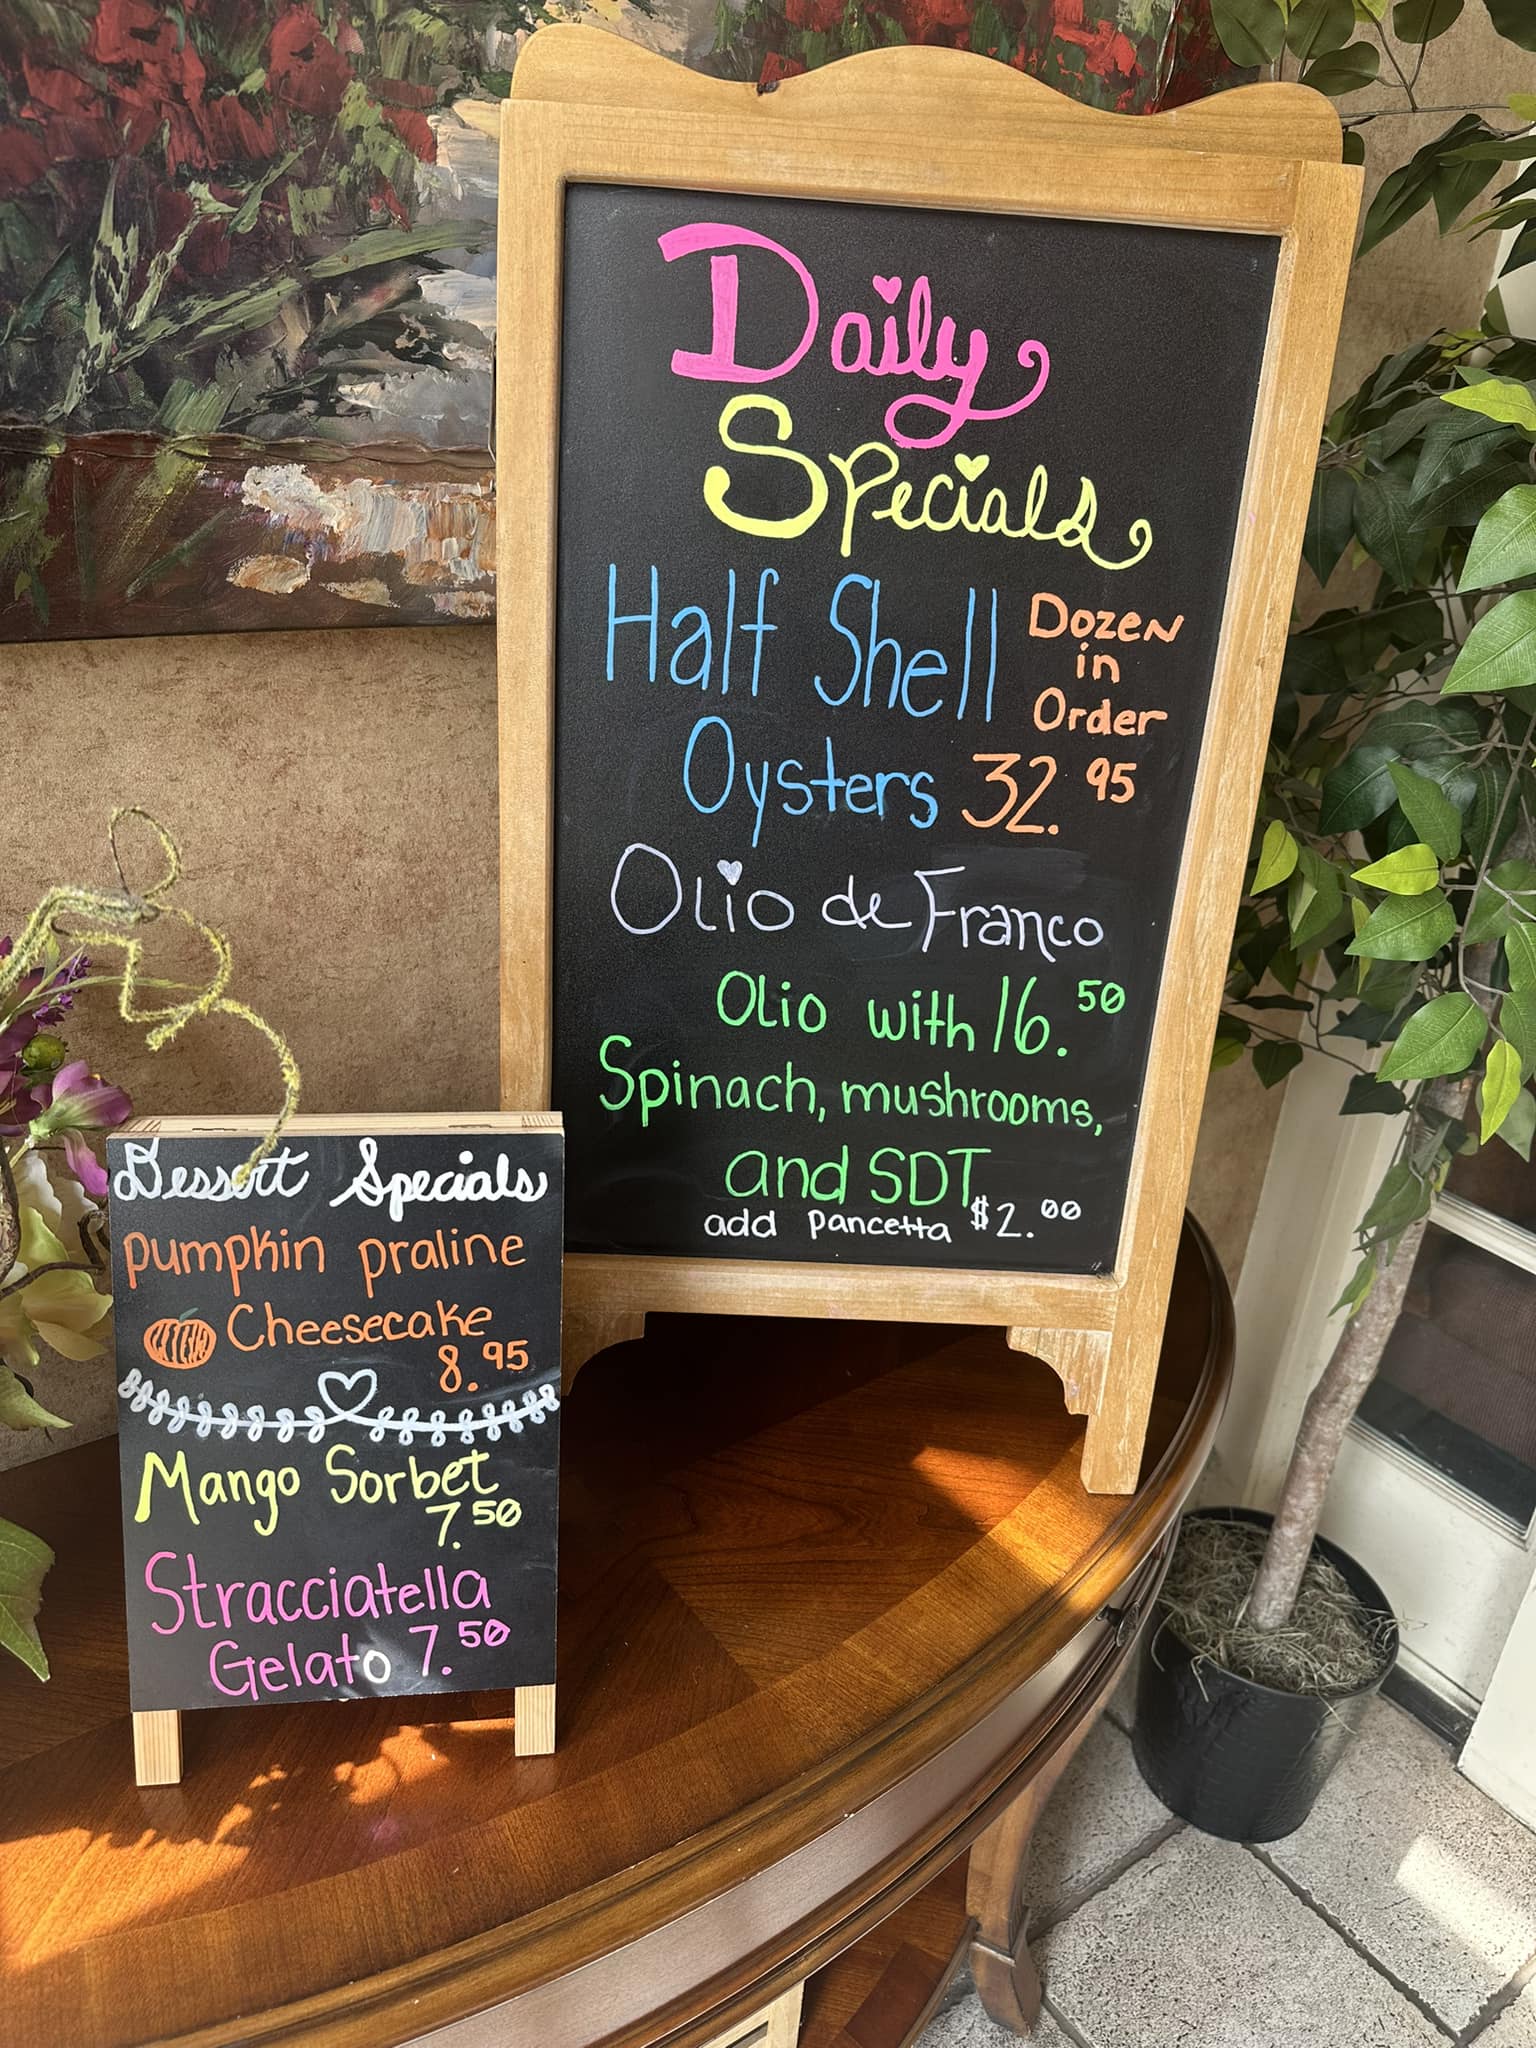 Daily
Specials
Half Shell
Oysters
Dozen
in
Order
32.95
Olio de Franco
Olio with 16.50
Spinach, mushrooms,
and SDT
add pancetta $2.00
Dessert Specials
pumpkin praline
Cheesecake
8.95
Mango Sorbet
7.50
Stracciatella
Gelato 7.50